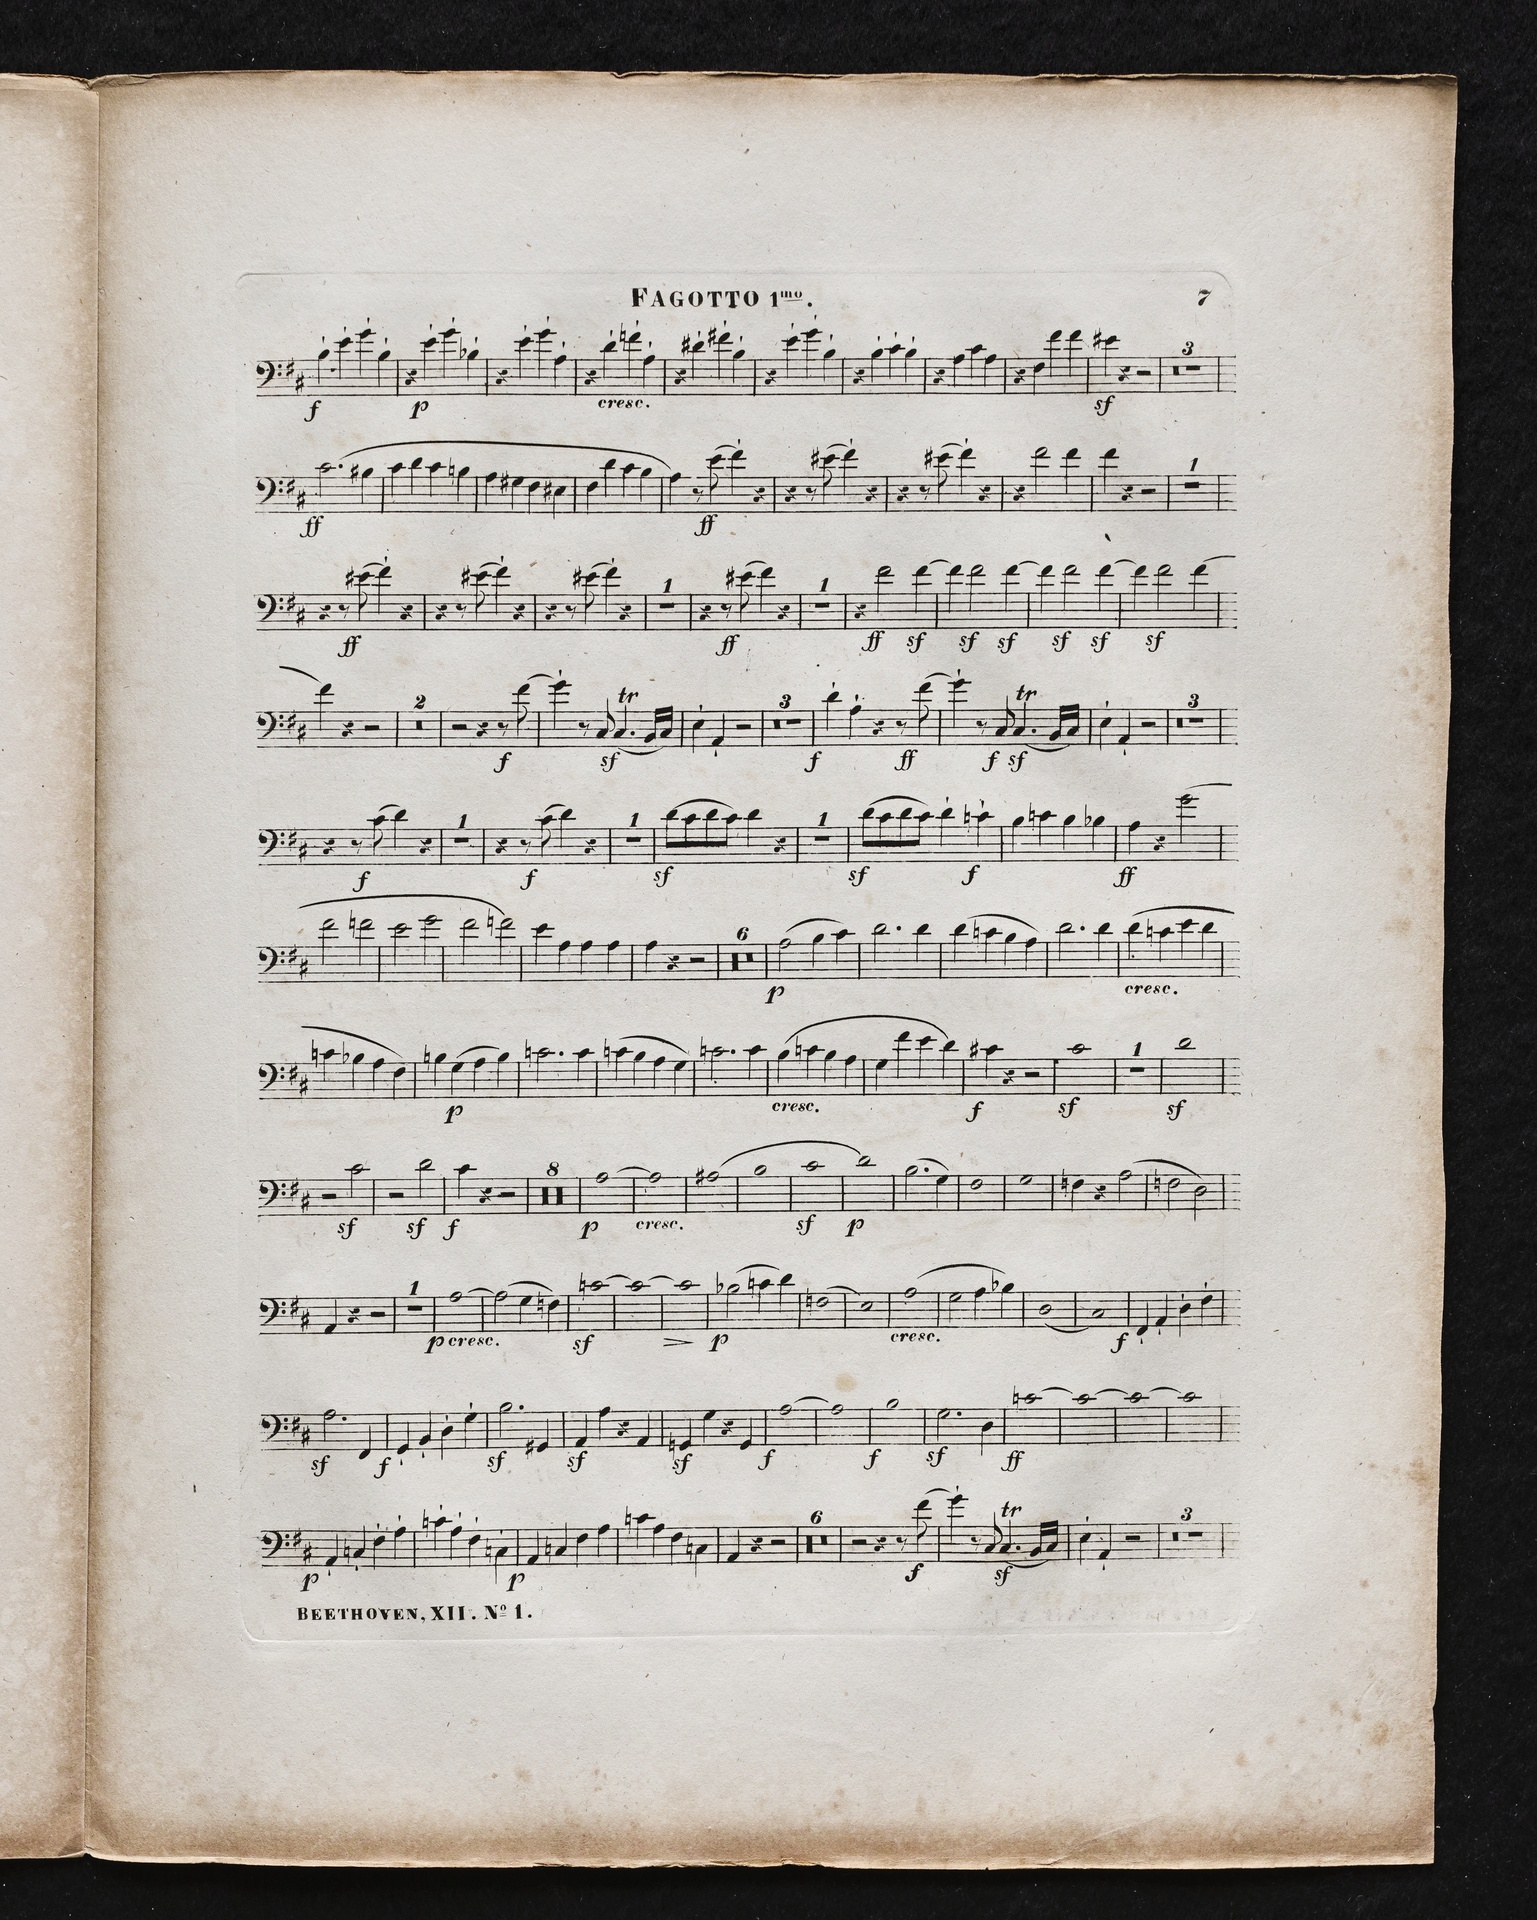 FAGOTTO 1mo.
7
3
f p cresc. sf
1
ff ff
1 1
ff ff ff sf sf sf sf sf sf
2 tr 3 tr 3
f sf f ff f sf
1 1 1
f f sf sf f ff
6
p cresc.
1
p cresc. f sf sf
8
sf sf f p cresc. sf p
1
p cresc. sf p cresc. f
sf f sf sf sf f f sf ff
6 tr 3
p p f sf
BEETHOVEN, XII. No 1.